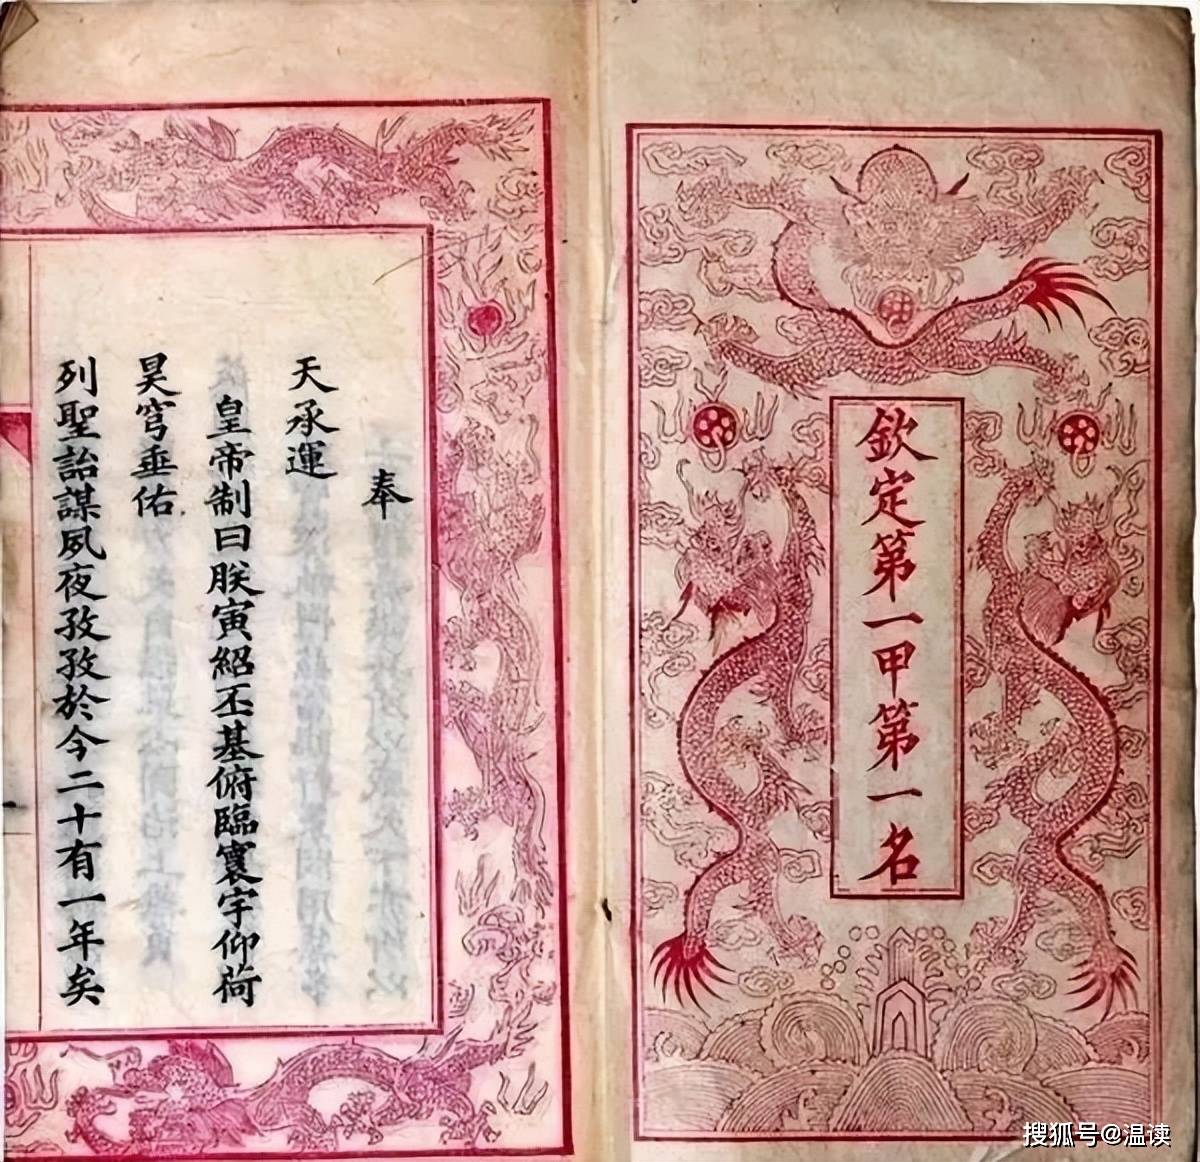 欽定第一甲第一名
奉
天承運
皇帝制曰朕寅紹丕基俯臨寰宇仰荷
昊穹垂佑
列聖詒謀夙夜孜孜於今二十有一年矣
搜狐号@温读